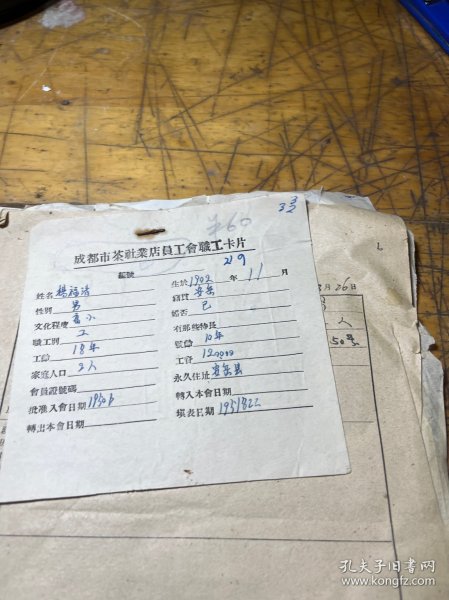 3 3/2
#60
成都市茶社業店員工會職工卡片
編號 29
姓名 楊福清 生於1902年11月
性別 男 籍貫 安岳
文化程度 高小 婚否 已
職工別 工 有那些特長
工齡 18年 駐會 10年
家庭人口 2人 工資 120000
會員證號碼 永久住址 安岳县
批准入會日期 1950 6 轉入本會日期
轉出本會日期 填表日期 1951822
月26日
人
50号
孔夫子旧书网
www.kongfz.com